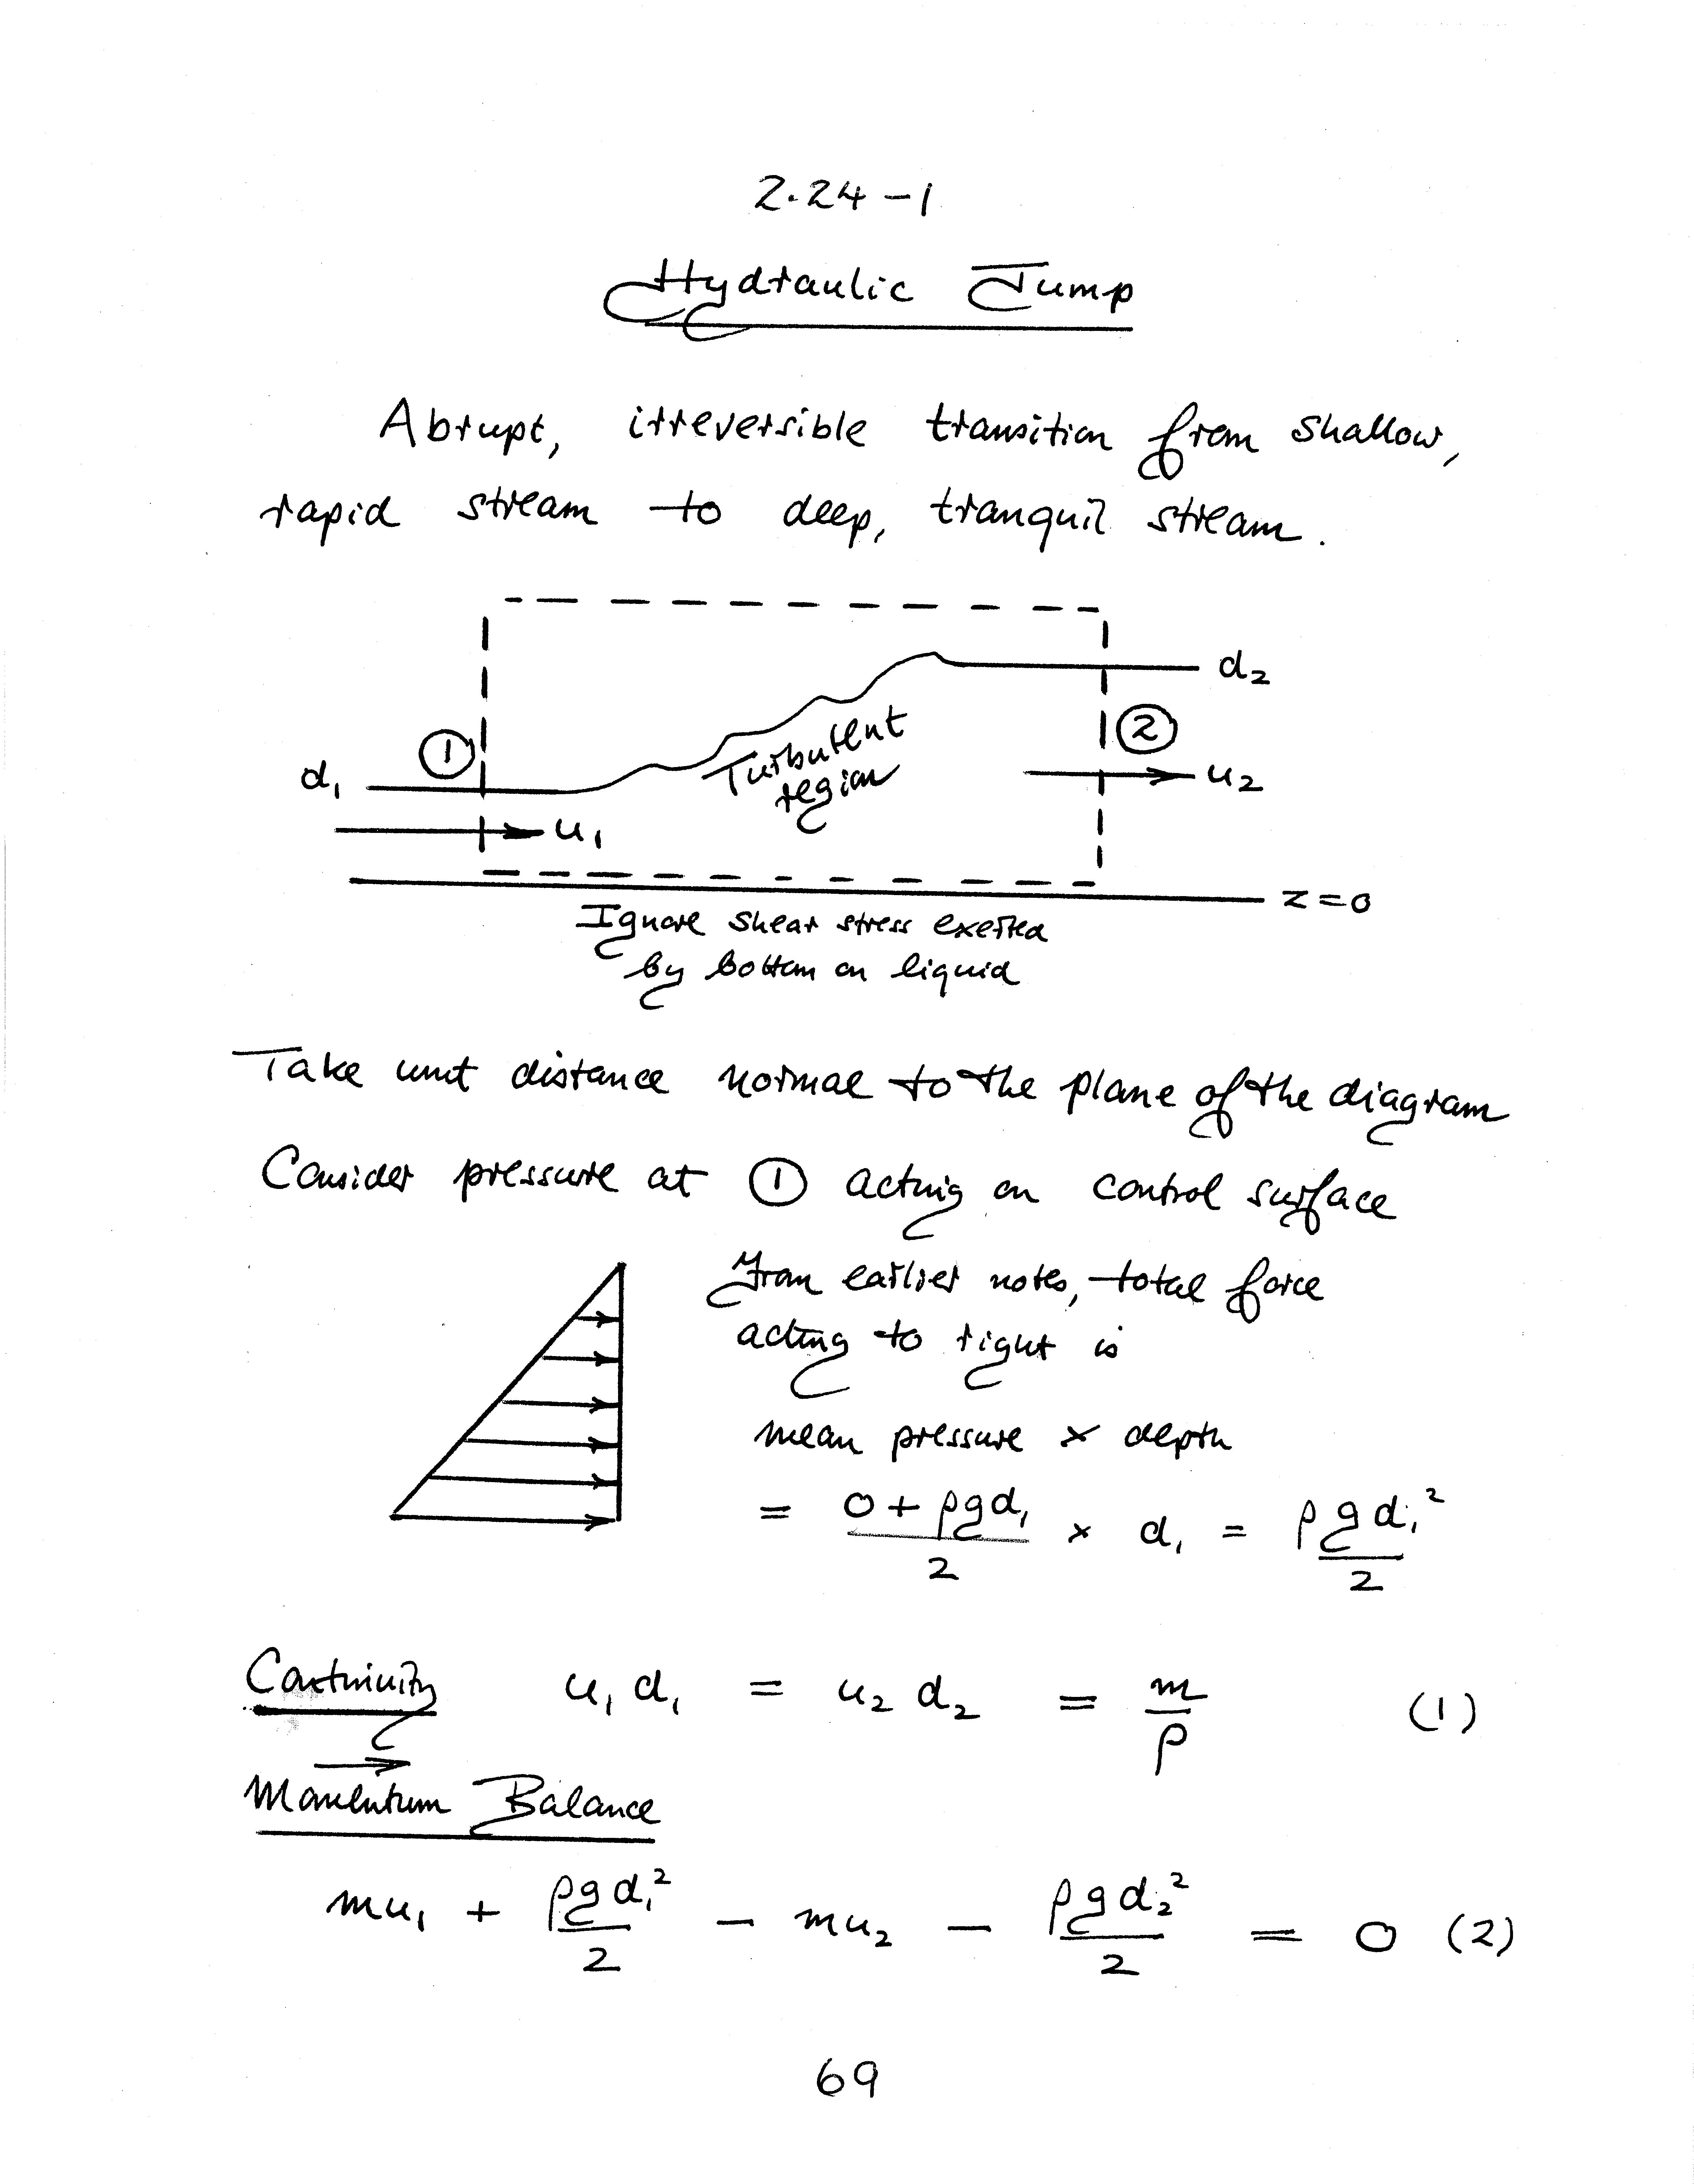 2.24-1
Hydraulic Jump
Abrupt, irreversible transition from shallow,
rapid stream to deep, tranquil stream.
d₂
①
②
d₁
Turbulent
region
u₂
u₁
z=0
Ignore shear stress exerted
by bottom on liquid
Take unit distance normal to the plane of the diagram
Consider pressure at ① acting on control surface
From earlier notes, total force
acting to right is
mean pressure × depth
= (0 + ρgd₁)/2 × d₁ = ρgd₁²/2
Continuity u₁d₁ = u₂d₂ = m/ρ (1)
Momentum Balance
mu₁ + ρgd₁²/2 − mu₂ − ρgd₂²/2 = 0 (2)
69